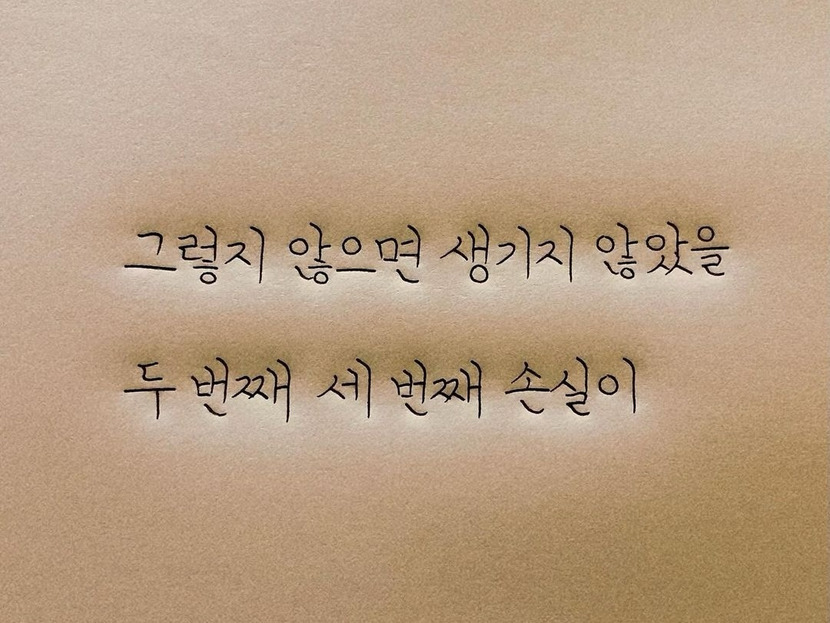 그렇지 않으면 생기지 않았을
두 번째 세 번째 손실이